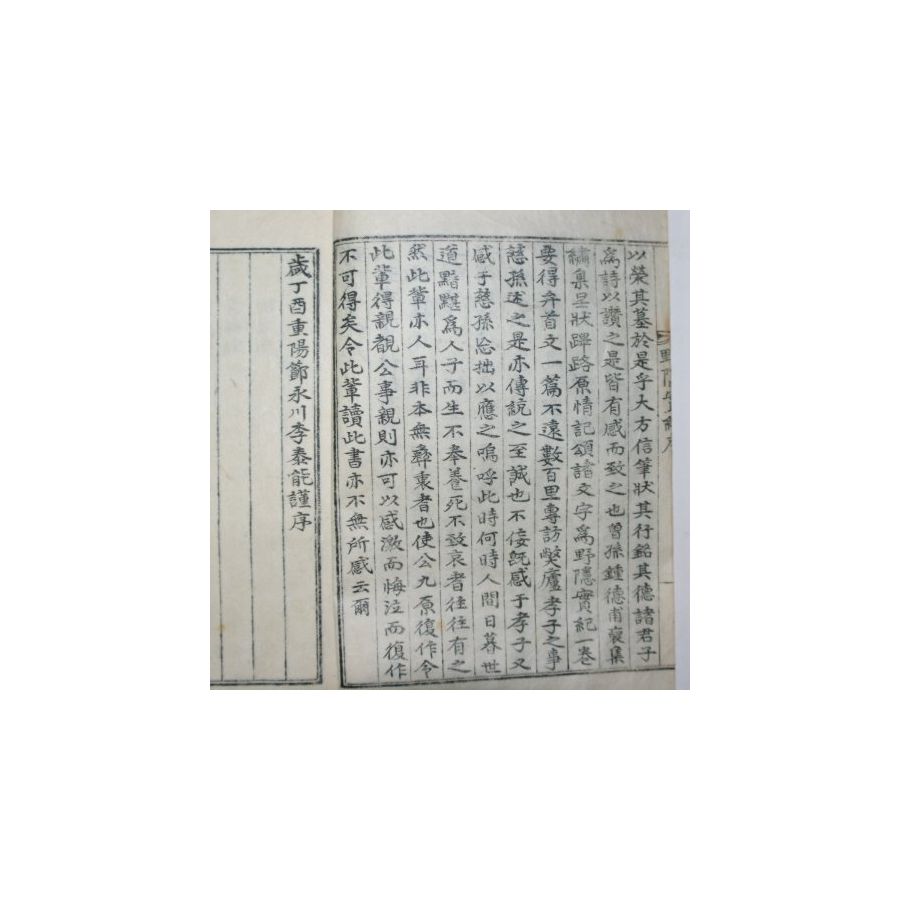 野隱實紀序
以榮其墓於是乎大方信筆狀其行銘其德諸君子
爲詩以讚之是皆有感而致之也曾孫鍾德甫裒集
繡集呈狀蹕路原情記頌諸文字爲野隱實紀一卷
要得弁首文一篇不遠數百里專訪弊廬孝子之事
慈孫述之是亦傳說之至誠也不佞旣感于孝子又
感于慈孫忘拙以應之嗚呼此時何時人間日暮世
道黯黮爲人子而生不奉養死不致哀者往往有之
然此輩亦人耳非本無彝衷者也使公九原復作令
此輩得親覩公事親則亦可以感激而悔泣而復作
不可得矣令此輩讀此書亦不無所感云爾
歲丁酉重陽節永川李泰能謹序